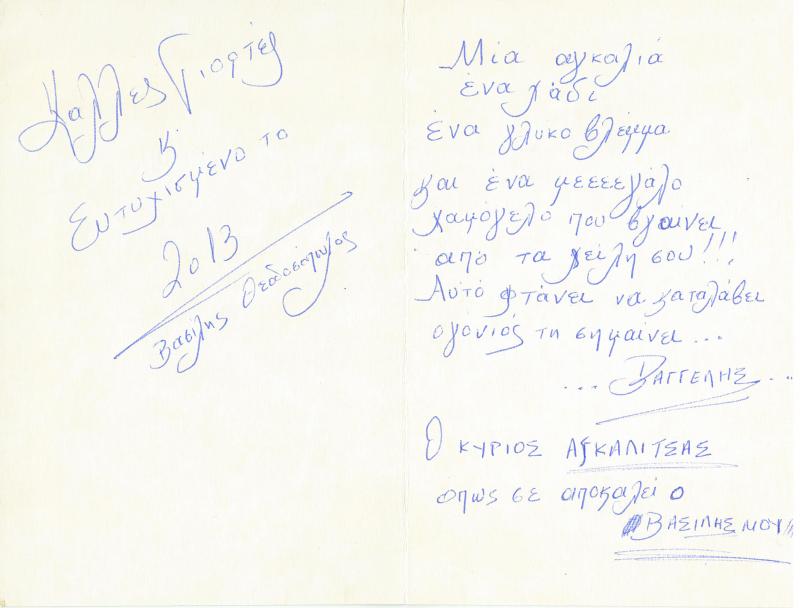 Καλλες Γιορτές
κ'
Ευτυχισμένο το
2013
Βασίλης Θεοδοσόπουλος
Μία αγκαλιά
ένα χάδι
ένα γλυκο βλέμμα
και ένα μεεεεγάλο
χαμόγελο που βγαίνει
από τα χείλη σου!!!
Αυτό φτάνει να καταλάβει
ο γονιός τη σημαίνει...
...ΒΑΓΓΕΛΗΣ...
Ο ΚΥΡΙΟΣ ΑΓΚΑΛΙΤΣΑΣ
οπως σε αποκαλεί ο
ΒΑΣΙΛΗΣ ΜΟΥ!!!